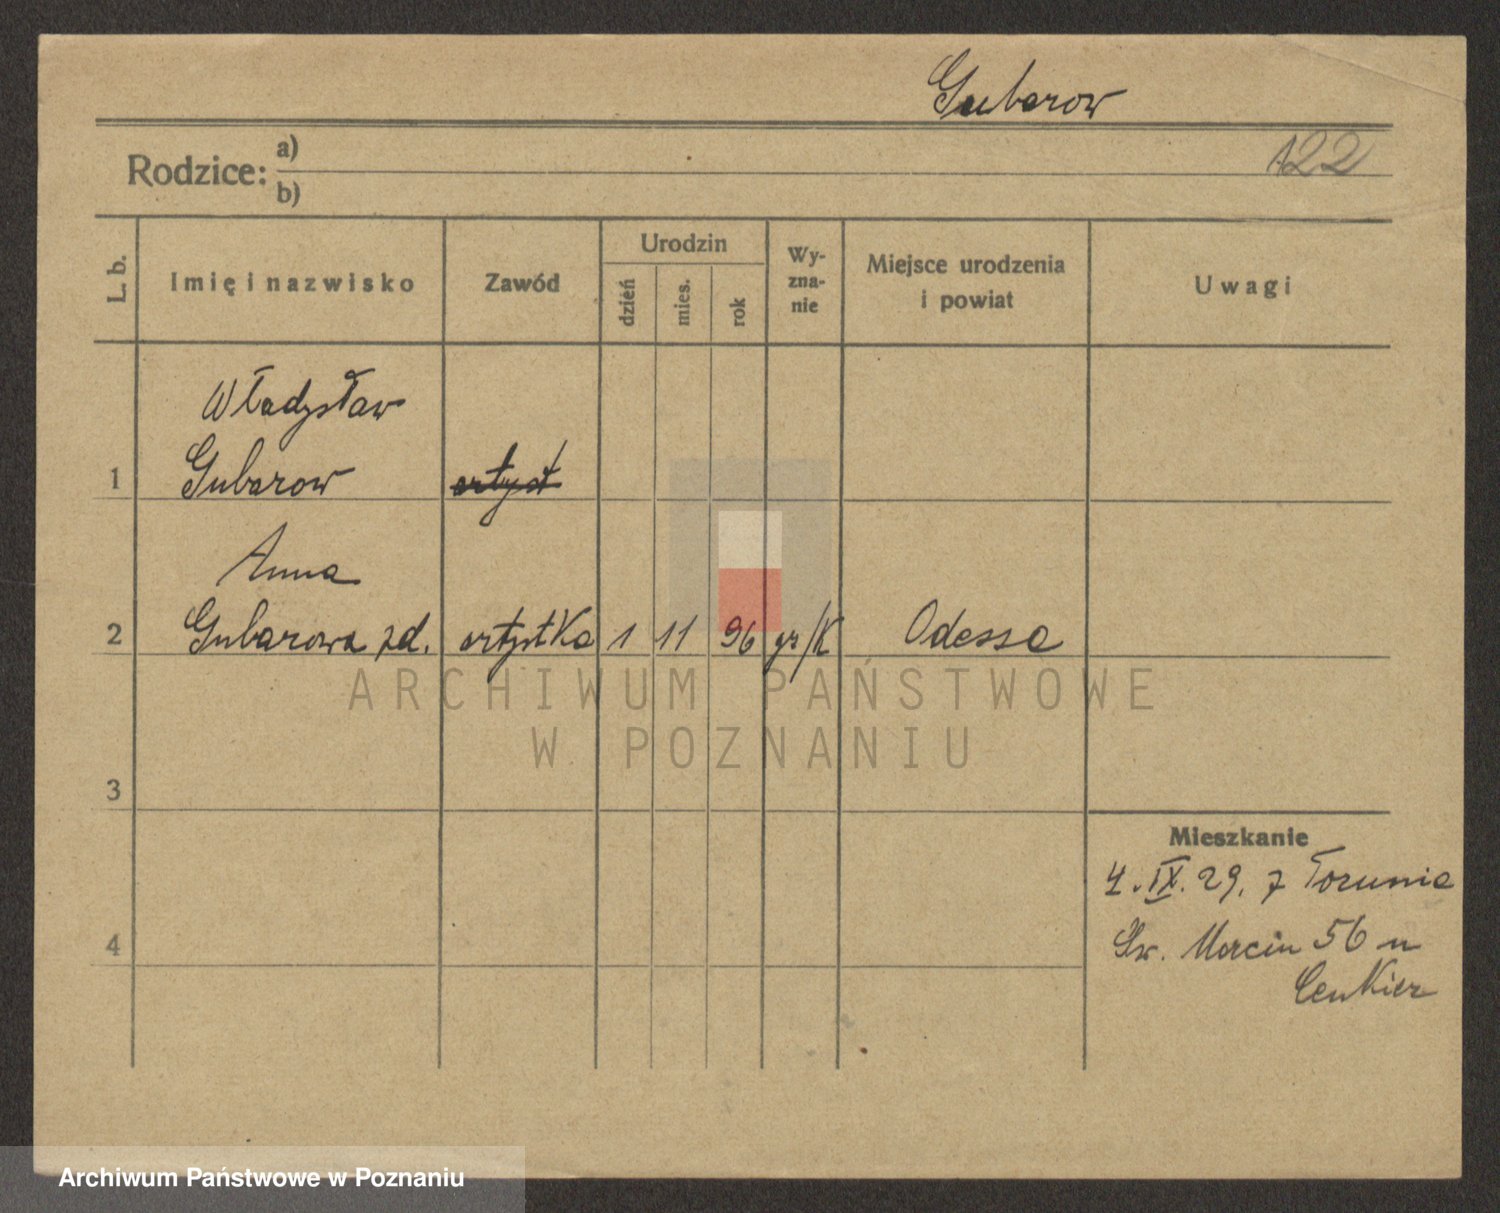 Gubarow
Rodzice: a)
122
b)
L. b.
Imię i nazwisko
Zawód
Urodzin
dzień
mies.
rok
Wy-
zna-
nie
Miejsce urodzenia
i powiat
Uwagi
Władysław
1 Gubarow artyst
Anna
2 Gubarowa zd. artystka 1 11 96 gr/k Odessa
ARCHIWUM PAŃSTWOWE
W POZNANIU
3
Mieszkanie
4. IX. 29. z Torunia
4
Św. Marcin 56 u
Cenkier
Archiwum Państwowe w Poznaniu